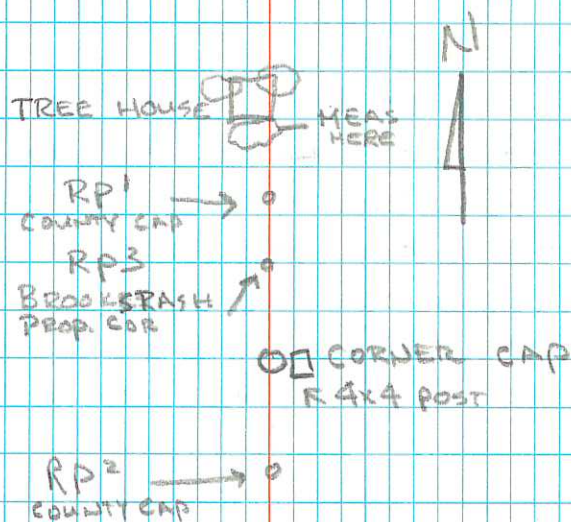 N
TREE HOUSE
MEAS
HERE
RP1
COUNTY CAP
RP3
BROOKSRASH
PROP. COR
CORNER CAP
4x4 POST
RP2
COUNTY CAP